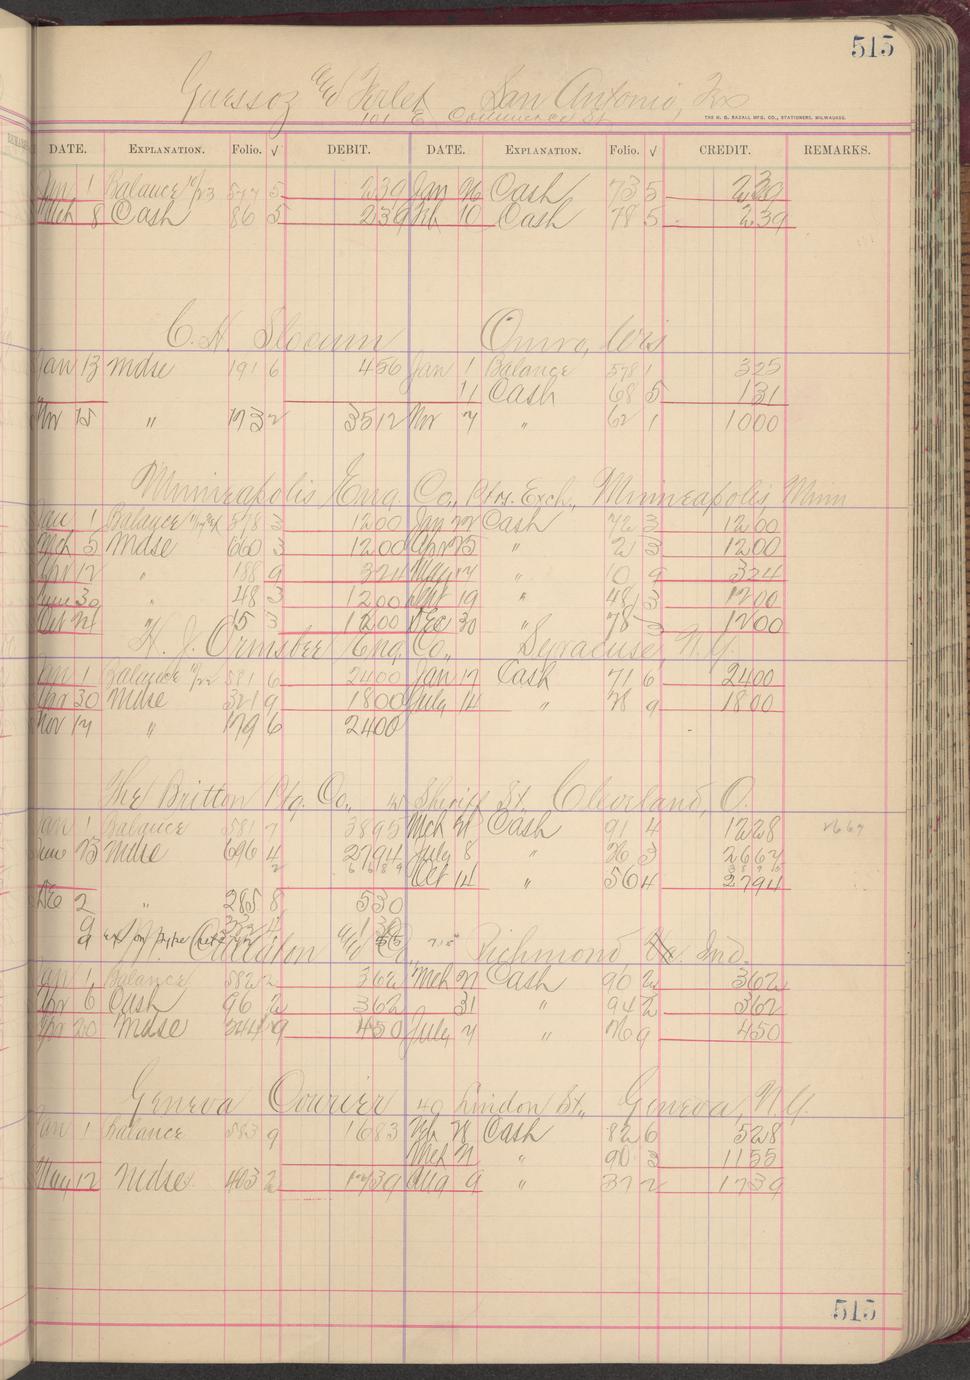 515
Guessoz and Ferlet San Antonio, Tex
101 E Commerce St
THE H. G. RAZALL MFG. CO., STATIONERS, MILWAUKEE.
DATE. EXPLANATION. FOLIO. √ DEBIT. DATE. EXPLANATION. FOLIO. √ CREDIT. REMARKS.
Jan 1 Balance 577 5 239 Jan 26 Cash 73 5 239
Mch 8 Cash 86 5 239 Feb 10 Cash 78 5 239
C. H. Slocum Omro, Wis
Jan 13 Mdse 191 6 456 Jan 1 Balance 578 1 325
11 Cash 68 5 131
Nov 15 " 173 2 3512 Nov 7 " 62 1 1000
Minneapolis Eng. Co., Minneapolis, Minn
Jan 1 Balance 578 3 1200 Jan 22 Cash 72 3 1200
Mch 5 Mdse 660 3 1200 Apr 25 " 2 3 1200
Apr 12 " 188 9 324 May 17 " 10 9 324
June 30 " 48 3 1200 Sept 19 " 48 3 1200
Oct 21 " 5 3 1200 Dec 30 " 78 3 1200
H. J. Ormsbee Eng. Co., Syracuse N.Y.
Jan 1 Balance 581 6 2400 Jan 17 Cash 71 6 2400
Apr 30 Mdse 321 9 1800 July 14 " 28 9 1800
Nov 17 " 179 6 2400
The Britton Ptg. Co., Sheriff St., Cleveland, O.
Jan 1 Balance 581 7 3895 Mch 21 Cash 91 4 1228
June 23 Mdse 696 4 2794 July 8 " 26 3 2667
Oct 14 " 56 4 2794
Dec 2 " 285 8 530
9
Culliston and Co., Richmond Ind.
Jan 1 Balance 582 2 362 Mch 21 Cash 90 2 362
Apr 6 Cash 96 2 362 31 " 94 2 362
Apr 20 Mdse 244 9 450 July 7 " 26 9 450
Geneva Courier 49 Lindon St., Geneva, N.Y.
Jan 1 Balance 583 9 1683 Feb 28 Cash 82 6 528
Mch 21 " 90 3 1155
May 12 Mdse 403 2 1739 Aug 9 " 37 2 1739
515